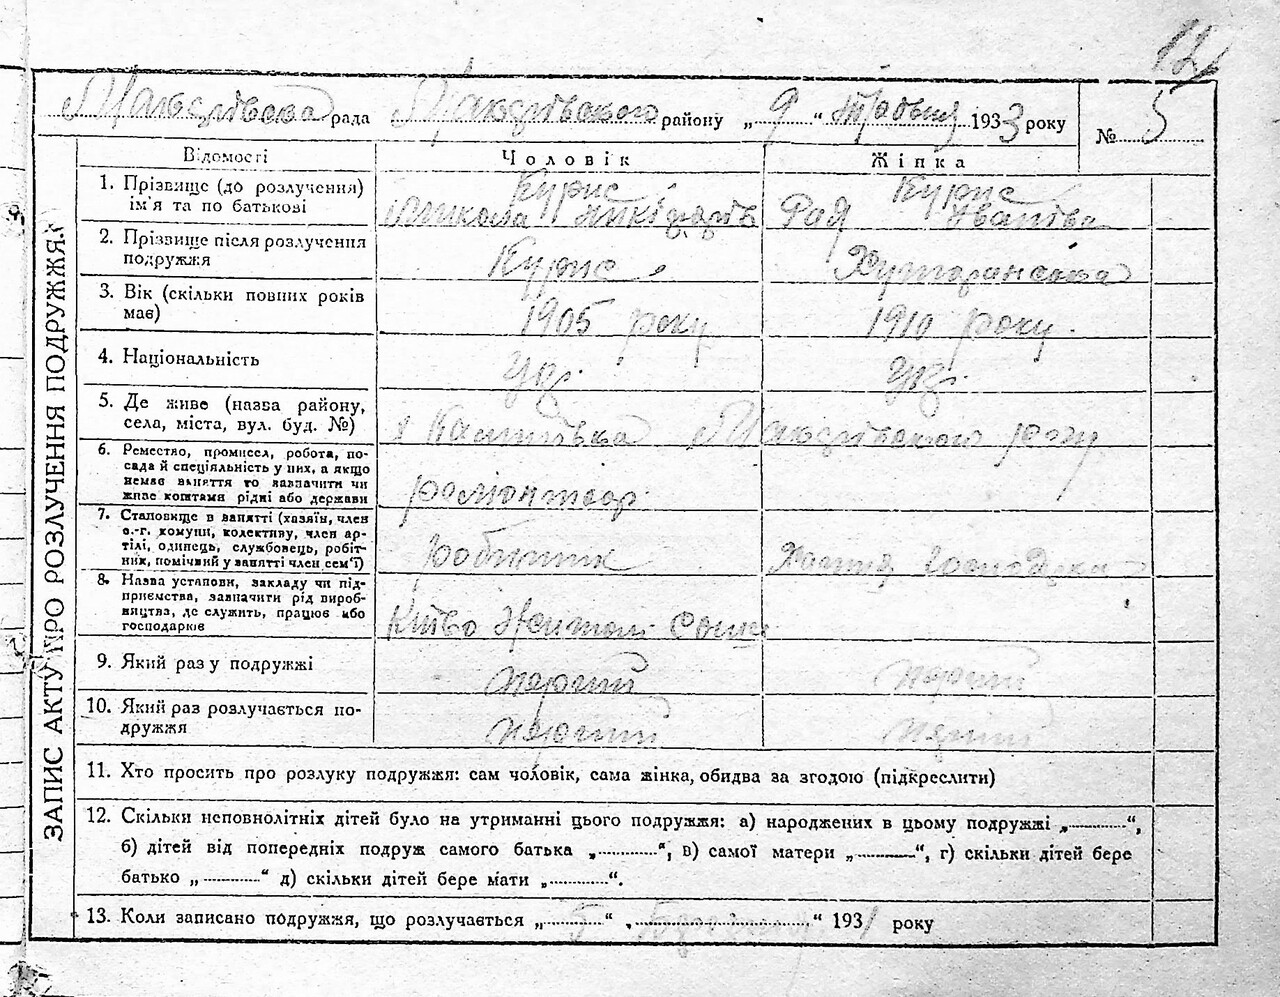 12
Макарівська рада Макарівського району „9“ Травня 1933 року № 5
ЗАПИС АКТУ ПРО РОЗЛУЧЕННЯ ПОДРУЖЖЯ.
Відомості Чоловік Жінка
1. Прізвище (до розлучення) Курис Курис
ім'я та по батькові Микола Рая Іванівна
2. Прізвище після розлучення
подружжя Курис
3. Вік (скільки повних років
має) 1905 року 1910 року.
4. Національність Укр. Укр.
5. Де живе (назва району,
села, міста, вул. буд. №) Макарівського
6. Ремество, промисел, робота, по-
сада й спеціяльність у них, а якщо
немає заняття то зазначити чи
живе коштами рідні або держави
7. Становище в занятті (хазяїн, член
с.-г. комуни, колективу, член ар-
тілі, одинець, службовець, робіт-
ник, помічний у занятті член сем'ї) робітник
8. Назва установи, закладу чи під-
приємства, зазначити рід вироб-
ництва, де служить, працює або
господарює
9. Який раз у подружжі перший перший
10. Який раз розлучається по-
дружжя перший перший
11. Хто просить про розлуку подружжя: сам чоловік, сама жінка, обидва за згодою (підкреслити)
12. Скільки неповнолітніх дітей було на утриманні цього подружжя: а) народжених в цьому подружжі „ “,
б) дітей від попередніх подруж самого батька „ “, в) самої матери „ “, г) скільки дітей бере
батько „ “ д) скільки дітей бере мати „ “.
13. Коли записано подружжя, що розлучається „5“ „ “ 1931 року